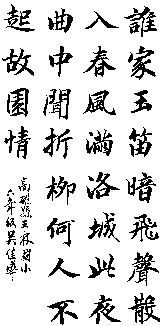 誰家玉笛暗飛聲散
入春風滿洛城此夜
曲中聞折柳何人不
起故園情
高雄縣林國小
六年級吳佳